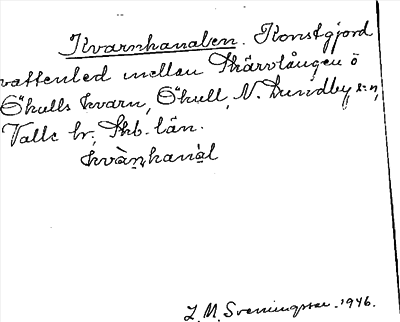 Kvarnkanalen. Konstgjord
vattenled mellan Skärvlången o
Ökulls kvarn, Ökull, N. Lundby s:n,
Valle hr, Skb. län.
kvà̱ṇkanàl
J. M. Sveningsson. 1946.